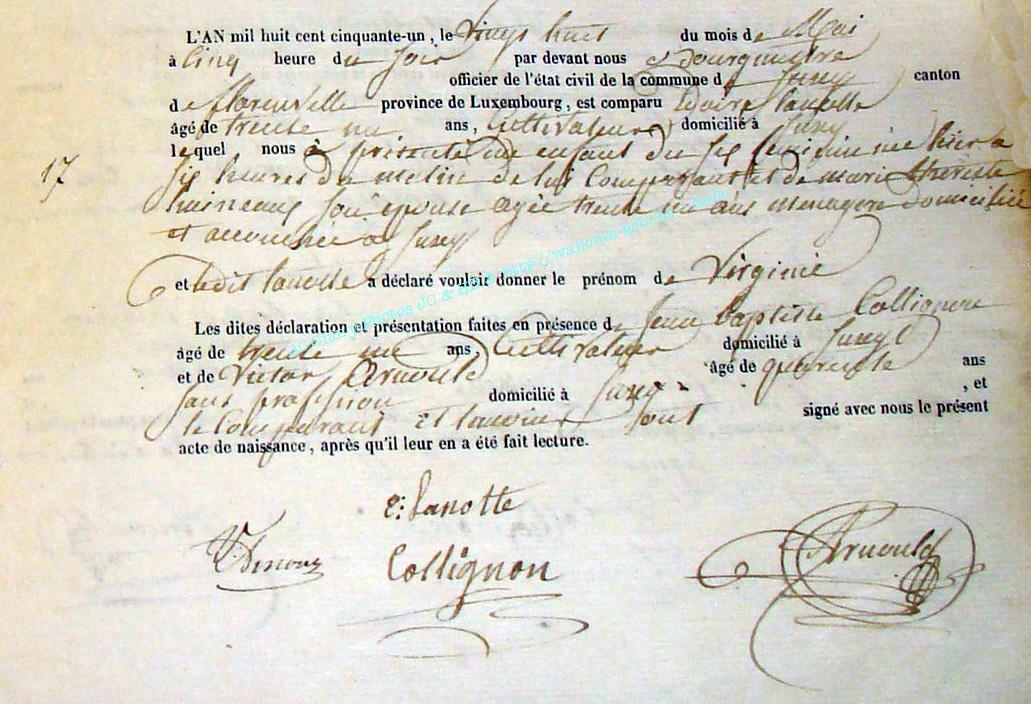 L'AN mil huit cent cinquante-un, le vingt huit du mois de Mai
à cinq heure du soir par devant nous Bourgmestre
officier de l'état civil de la commune de Juzy canton
de florenville province de Luxembourg, est comparu lanotte
âgé de trente un ans, Cultivateur domicilié à Juzy
lequel nous a présenté un enfant du sexe feminin née hier a
17
six heures du matin de lui Comparant et de marie therese
son epouse agée trente un ans menagere domiciliée
et accouchée a Juzy
et ledit lanotte a déclaré vouloir donner le prénom de Virginie
Les dites déclaration et présentation faites en présence de Jean Baptiste Collignon
âgé de trente un ans, Cultivateur domicilié à Juzy
et de Victor Arnould âgé de quarente ans
sans profession domicilié à Juzy , et
le Comparant et temoins sont signé avec nous le présent
acte de naissance, après qu'il leur en a été fait lecture.
e: Lanotte
Collignon
Arnould